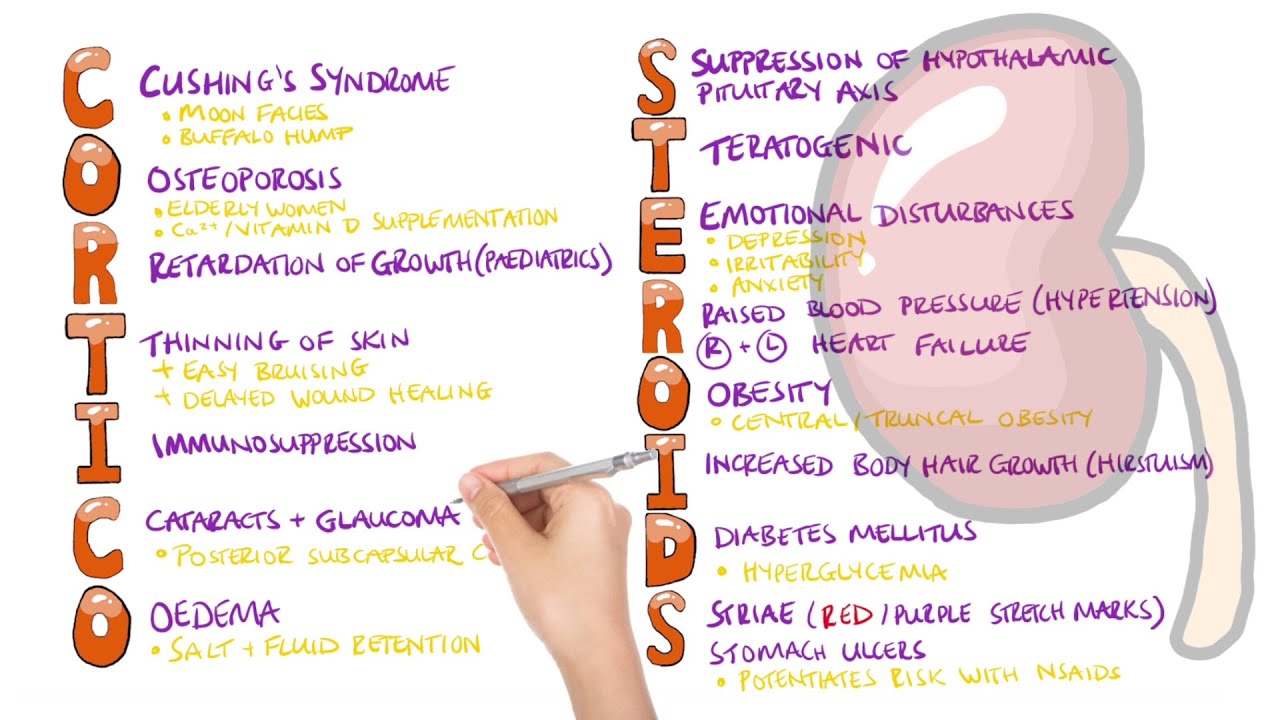 CORTICO
CUSHING'S SYNDROME
• MOON FACIES
• BUFFALO HUMP
OSTEOPOROSIS
• ELDERLY WOMEN
• Ca²⁺/VITAMIN D SUPPLEMENTATION
RETARDATION OF GROWTH (PAEDIATRICS)
THINNING OF SKIN
+ EASY BRUISING
+ DELAYED WOUND HEALING
IMMUNOSUPPRESSION
CATARACTS + GLAUCOMA
• POSTERIOR SUBCAPSULAR C
OEDEMA
• SALT + FLUID RETENTION
STEROIDS
SUPPRESSION OF HYPOTHALAMIC
PITUITARY AXIS
TERATOGENIC
EMOTIONAL DISTURBANCES
• DEPRESSION
• IRRITABILITY
• ANXIETY
RAISED BLOOD PRESSURE (HYPERTENSION)
R + L HEART FAILURE
OBESITY
• CENTRAL/TRUNCAL OBESITY
INCREASED BODY HAIR GROWTH (HIRSTUISM)
DIABETES MELLITUS
• HYPERGLYCEMIA
STRIAE (RED/PURPLE STRETCH MARKS)
STOMACH ULCERS
• POTENTIATES RISK WITH NSAIDS